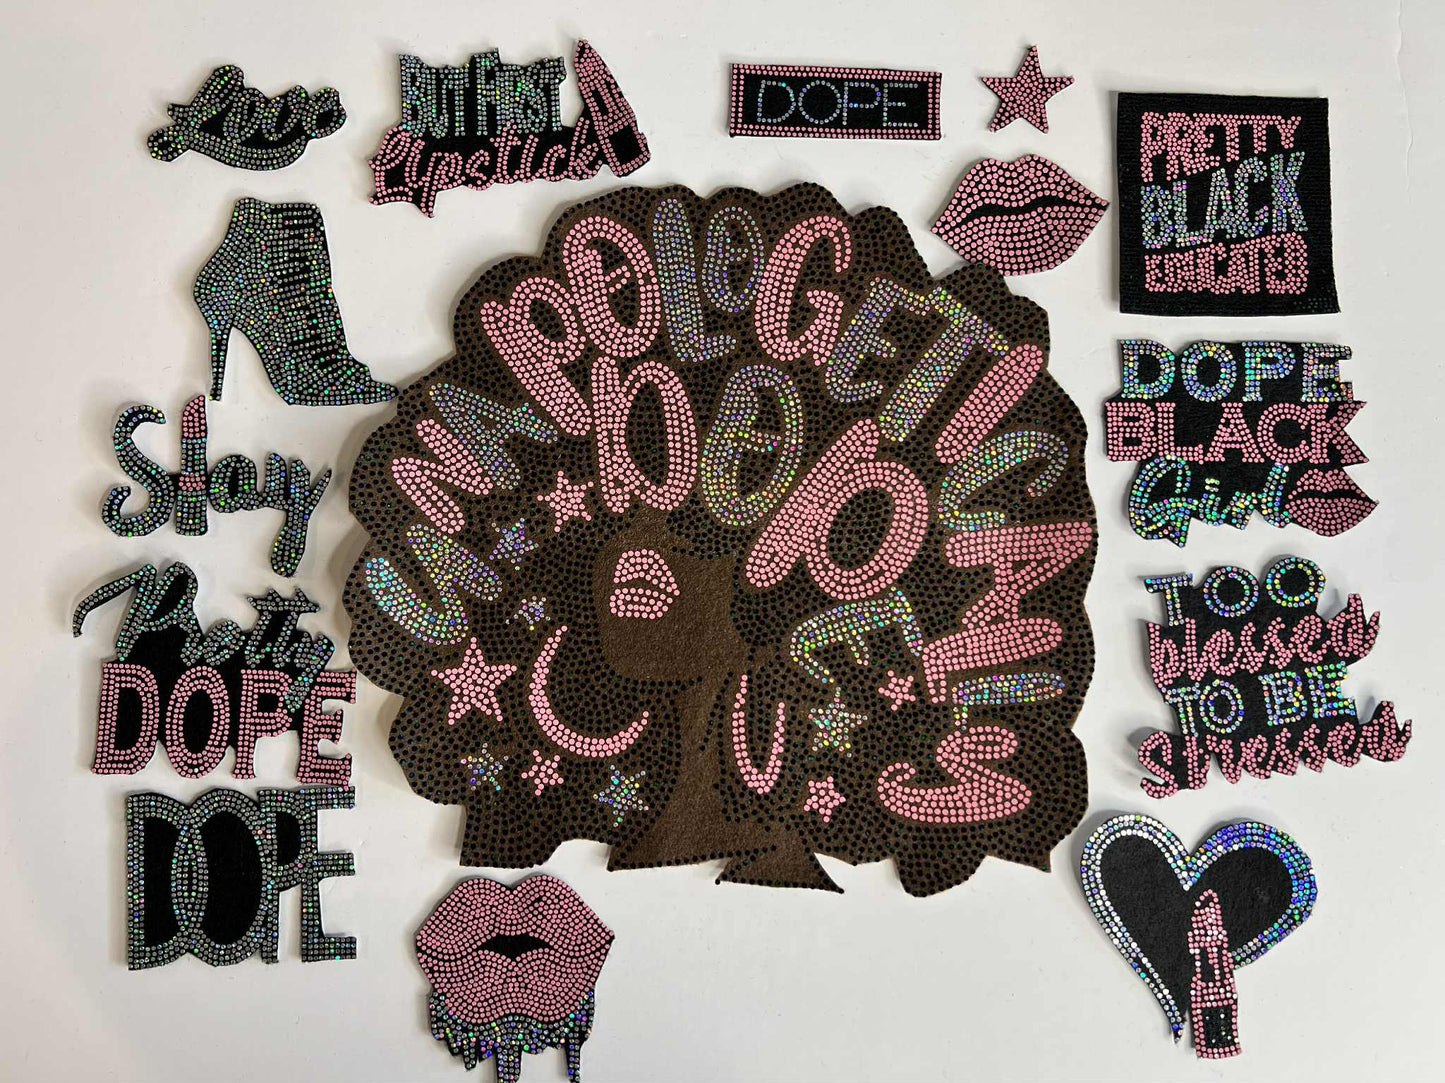 BUT FIRST
lipstick
DOPE
PRETTY
BLACK
EDUCATED
UNAPOLOGETICALLY
DOPE
DOPE
BLACK
Girl
Slay
Pretty
DOPE
TOO
blessed
TO BE
stressed
DOPE